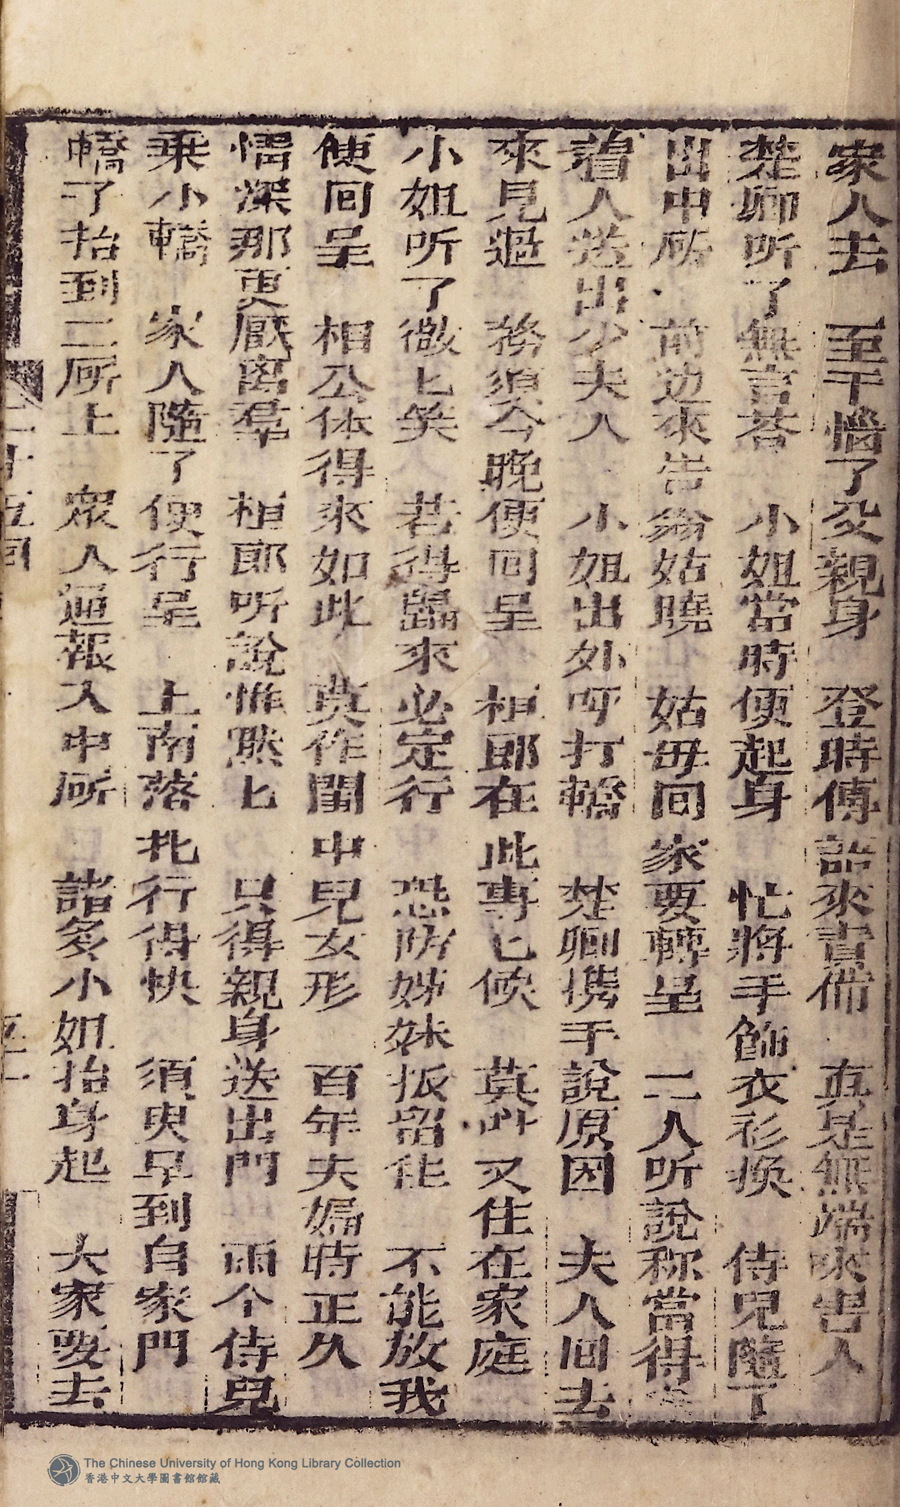 家人去　至干惱了父親身　登時傳諭來書俻　真是無端來害人
楚卿听了無言荅　小姐當時便起身　忙將手飾衣衫换　侍兒隨了
出中所　前边來告翁姑曉　姑母囘家要轉呈　二人听說称當得
着人送出少夫人　小姐出外呼打轎　楚卿携手說原因　夫人囘去
來見過　務須今晚便囘呈　桓郎在此專匕候　莫此又住在家庭
小姐听了微匕笑　若得歸來必定行　恐防姊妹扳留住　不能放我
使囘呈　相公体得來如此　莫作閨中兒女形　百年夫婦時正久
情深那更厭离羣　桓郎听說惟㸃匕　只得親身送出門　兩个侍兒
乗小轎　家人隨了便行呈　上南落北行得快　須臾早到自家門
轎子抬到二所上　衆人通報入中所　諸多小姐抬身起　大家要去
二十五囘
The Chinese University of Hong Kong Library Collection
香港中文大學圖書館館藏